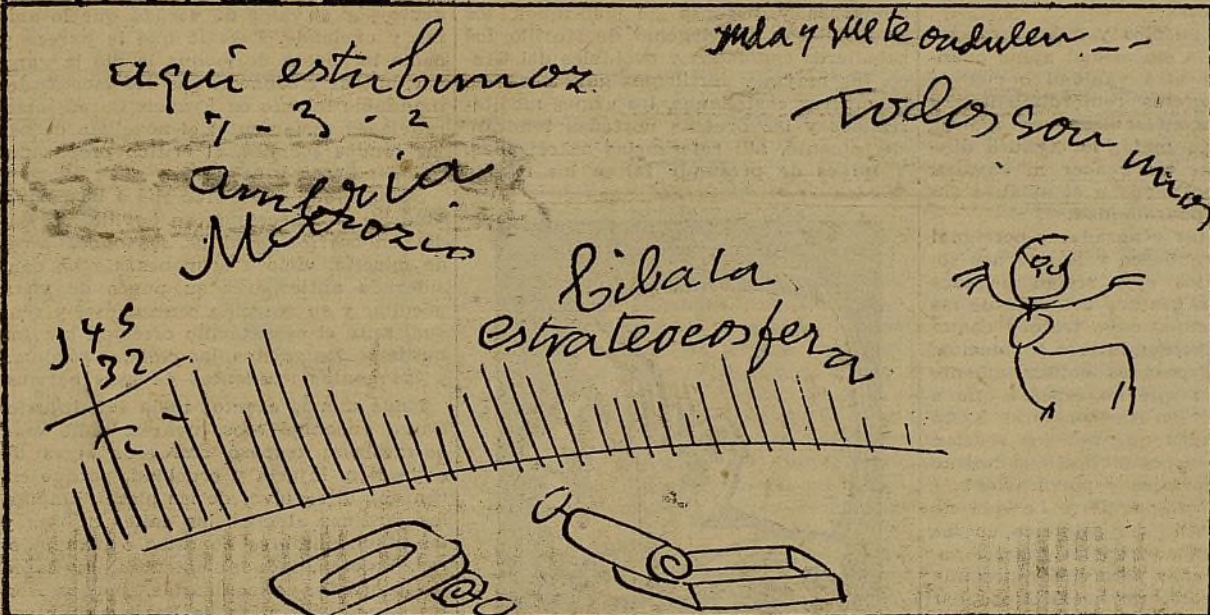 aqui estubimoz
7 - 3 - 2
ambria
anda y que te ondulen --
Todos son unos
bibala
estrateocosfera
345
32